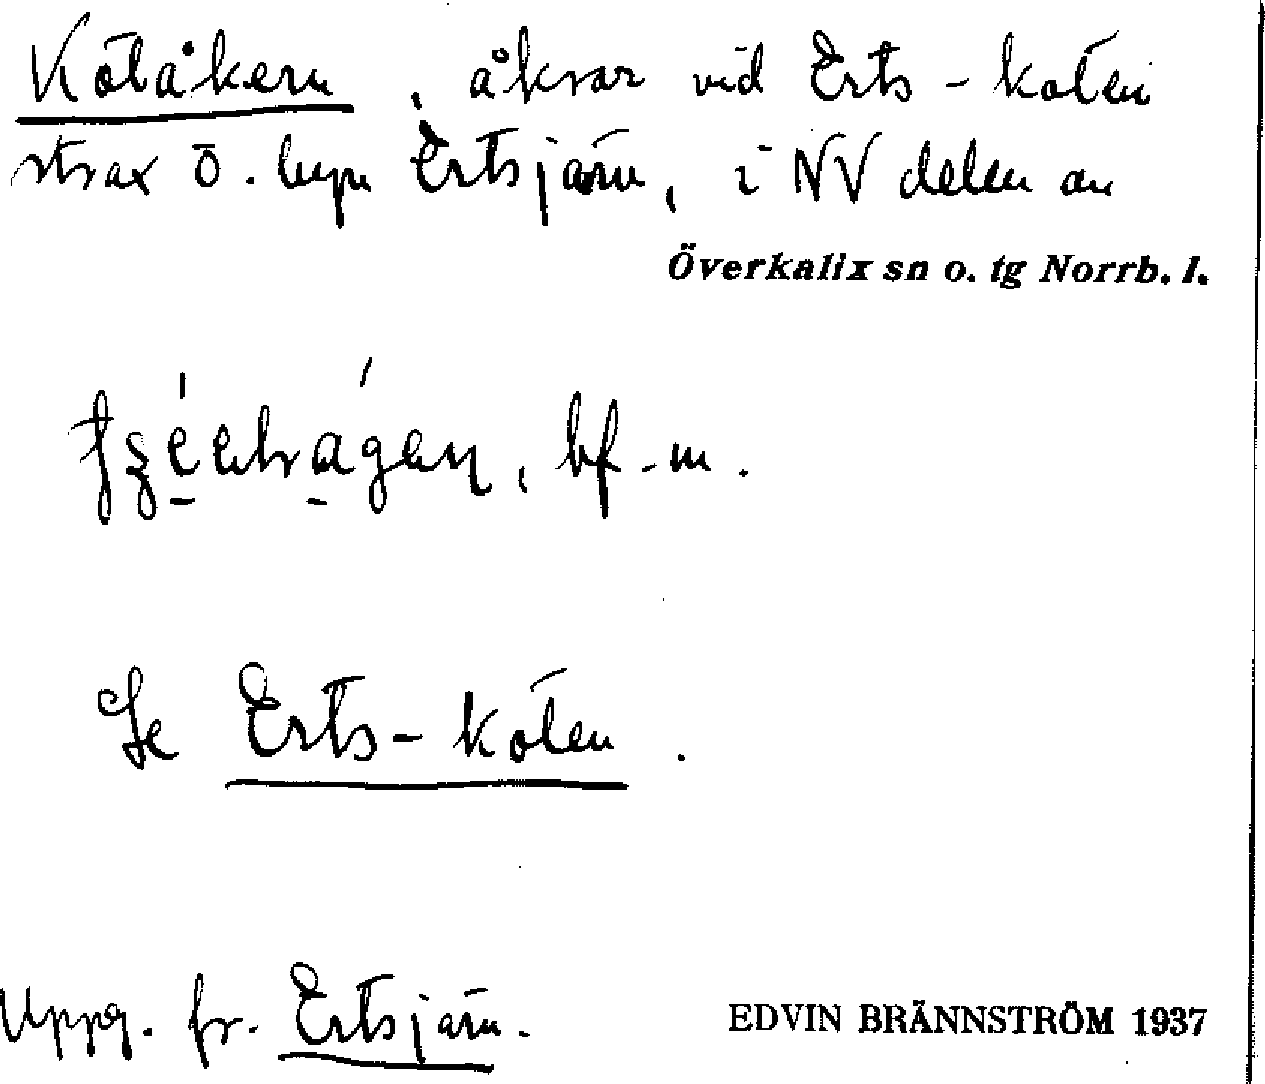 Kötåkern, åkrar vid Erts-köten
strax ö. byn Ertsjärn, i NV delen av
Överkalix sn o. tg Norrb. l.
bf. m.
Se Erts-köten.
Uppg. fr. Ertsjärn.
EDVIN BRÄNNSTRÖM 1937